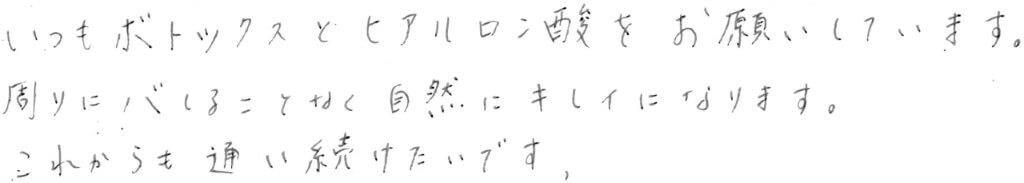 いつもボトックスとヒアルロン酸をお願いしています。
周りにバレることなく自然にキレイになります。
これからも通い続けたいです。